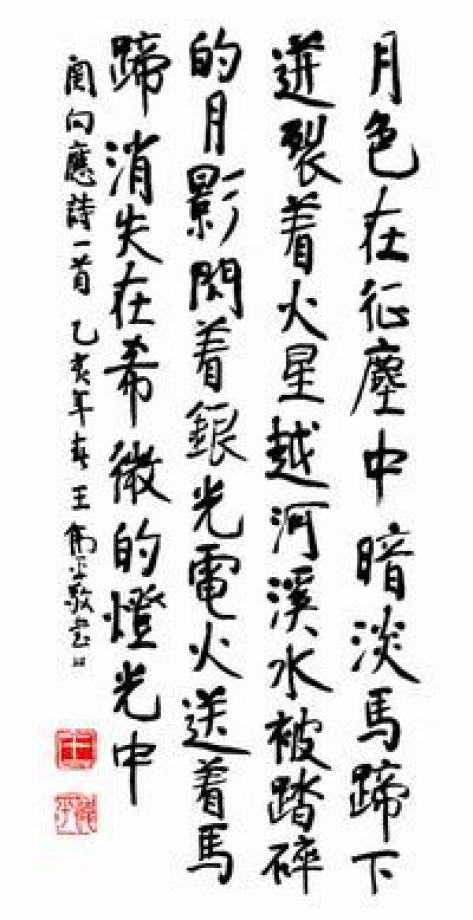 月色在征塵中暗淡馬蹄下
迸裂着火星越河溪水被踏碎
的月影閃着銀光電火送着馬
蹄消失在希微的燈光中
関向應詩一首 乙亥年春王偉平敬書
王